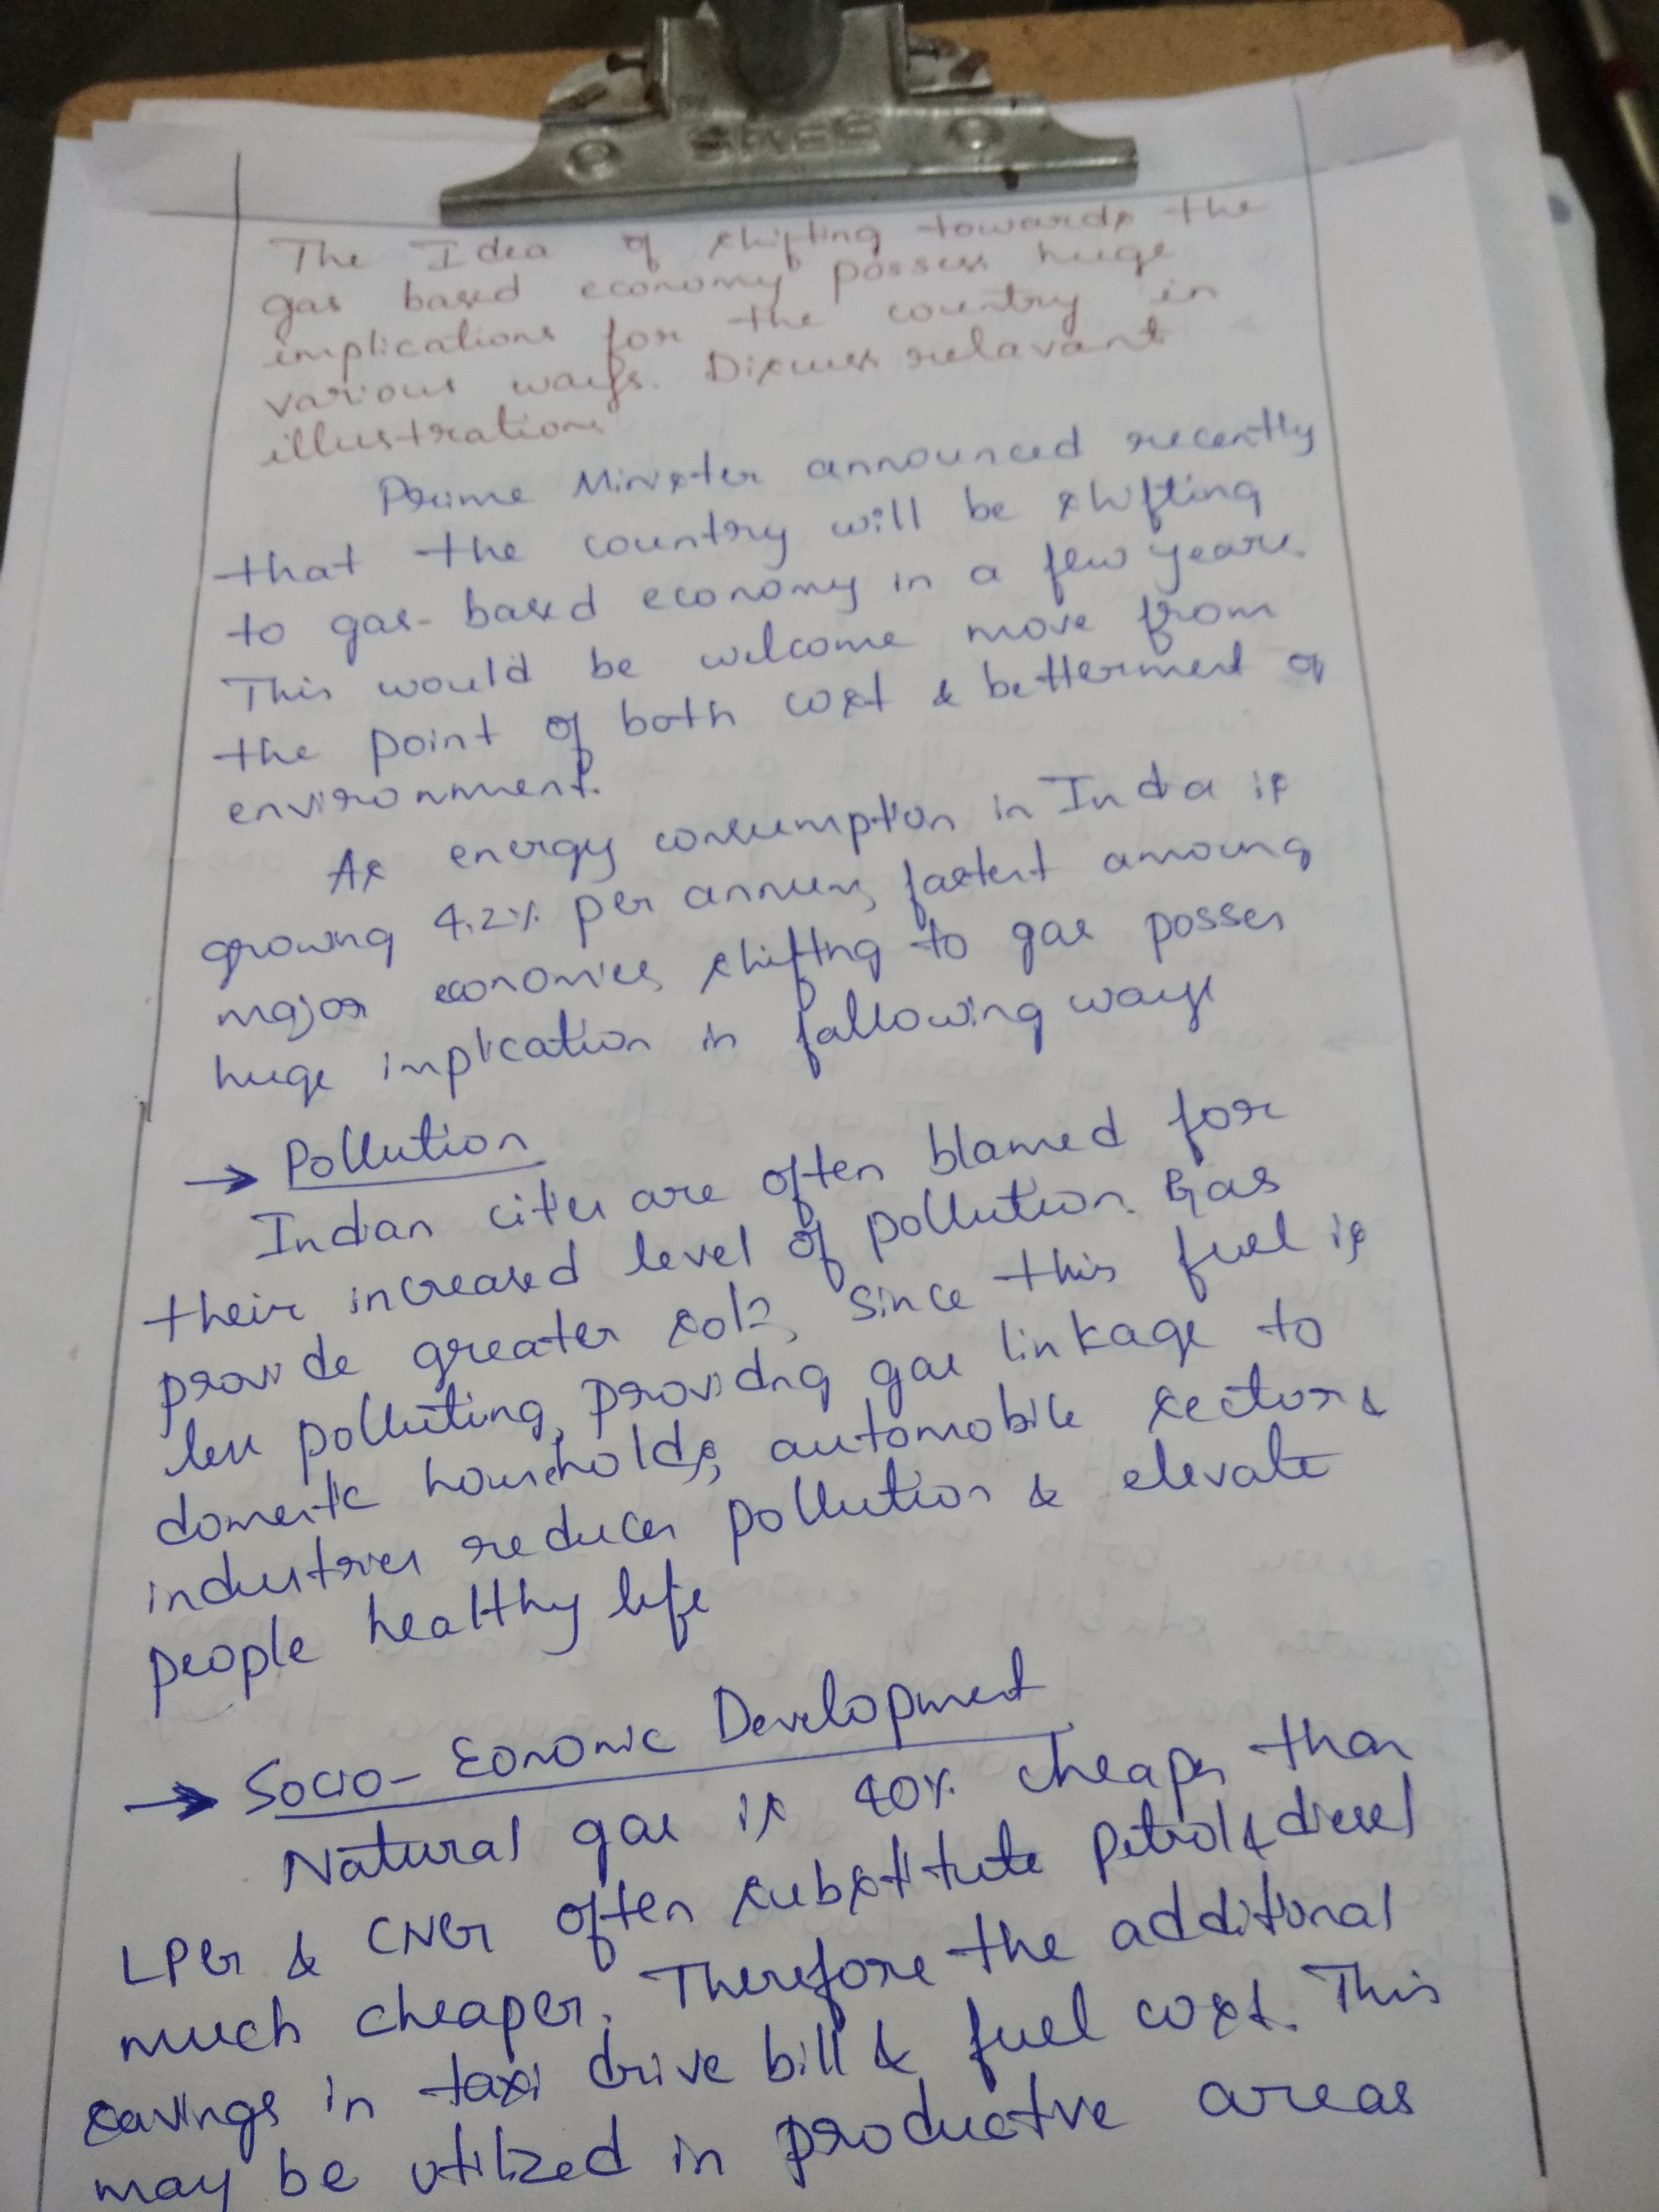 SREE
The Idea of shifting towards the
gas based economy possess huge
implications for the country in
various ways. Discuss relavant
illustrations
Prime Minister announced recently
that the country will be shifting
to gas-based economy in a few years.
This would be welcome move from
the point of both cost & betterment of
environment.
As energy consumption in India is
growing 4.2% per annum, fastest among
major economies, shifting to gas posses
huge implication in following ways
→ Pollution
Indian cities are often blamed for
their increased level of pollution. Gas
provide greater soln, since this fuel is
less polluting, providing gas linkage to
domestic households, automobile sectors &
industries reduces pollution & elevate
people healthy life
→ Socio-Economic Development
Natural gas is 40% cheaper than
LPG & CNG often substitute petrol & diesel
much cheaper. Therefore the additional
savings in taxi drive bill & fuel cost. This
may be utilized in productive areas